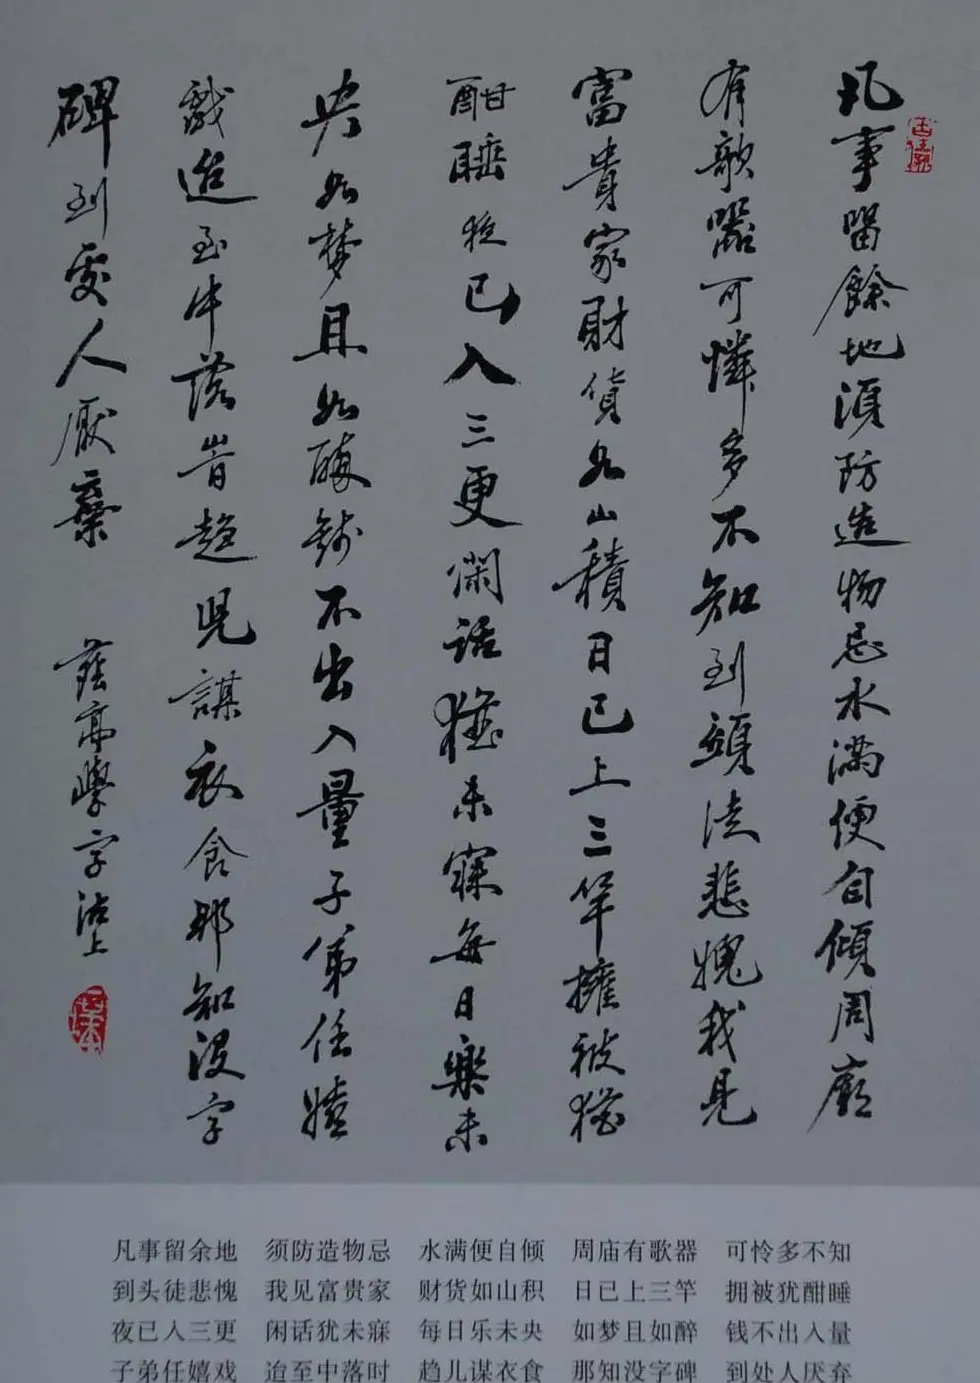 凡事留餘地須防造物忌水滿便自傾周廟
有歌器可憐多不知到頭徒悲愧我見
富貴家財貨如山積日已上三竿擁被猶
酣睡夜已入三更閑話猶未寐每日樂未
央如夢且如醉錢不出入量子弟任嬉
戲迨至中落時趨兒謀衣食那知沒字
碑到處人厭棄
凡事留余地 须防造物忌 水满便自倾 周庙有歌器 可怜多不知
到头徒悲愧 我见富贵家 财货如山积 日已上三竿 拥被犹酣睡
夜已入三更 闲话犹未寐 每日乐未央 如梦且如醉 钱不出入量
子弟任嬉戏 迨至中落时 趋儿谋衣食 那知没字碑 到处人厌弃